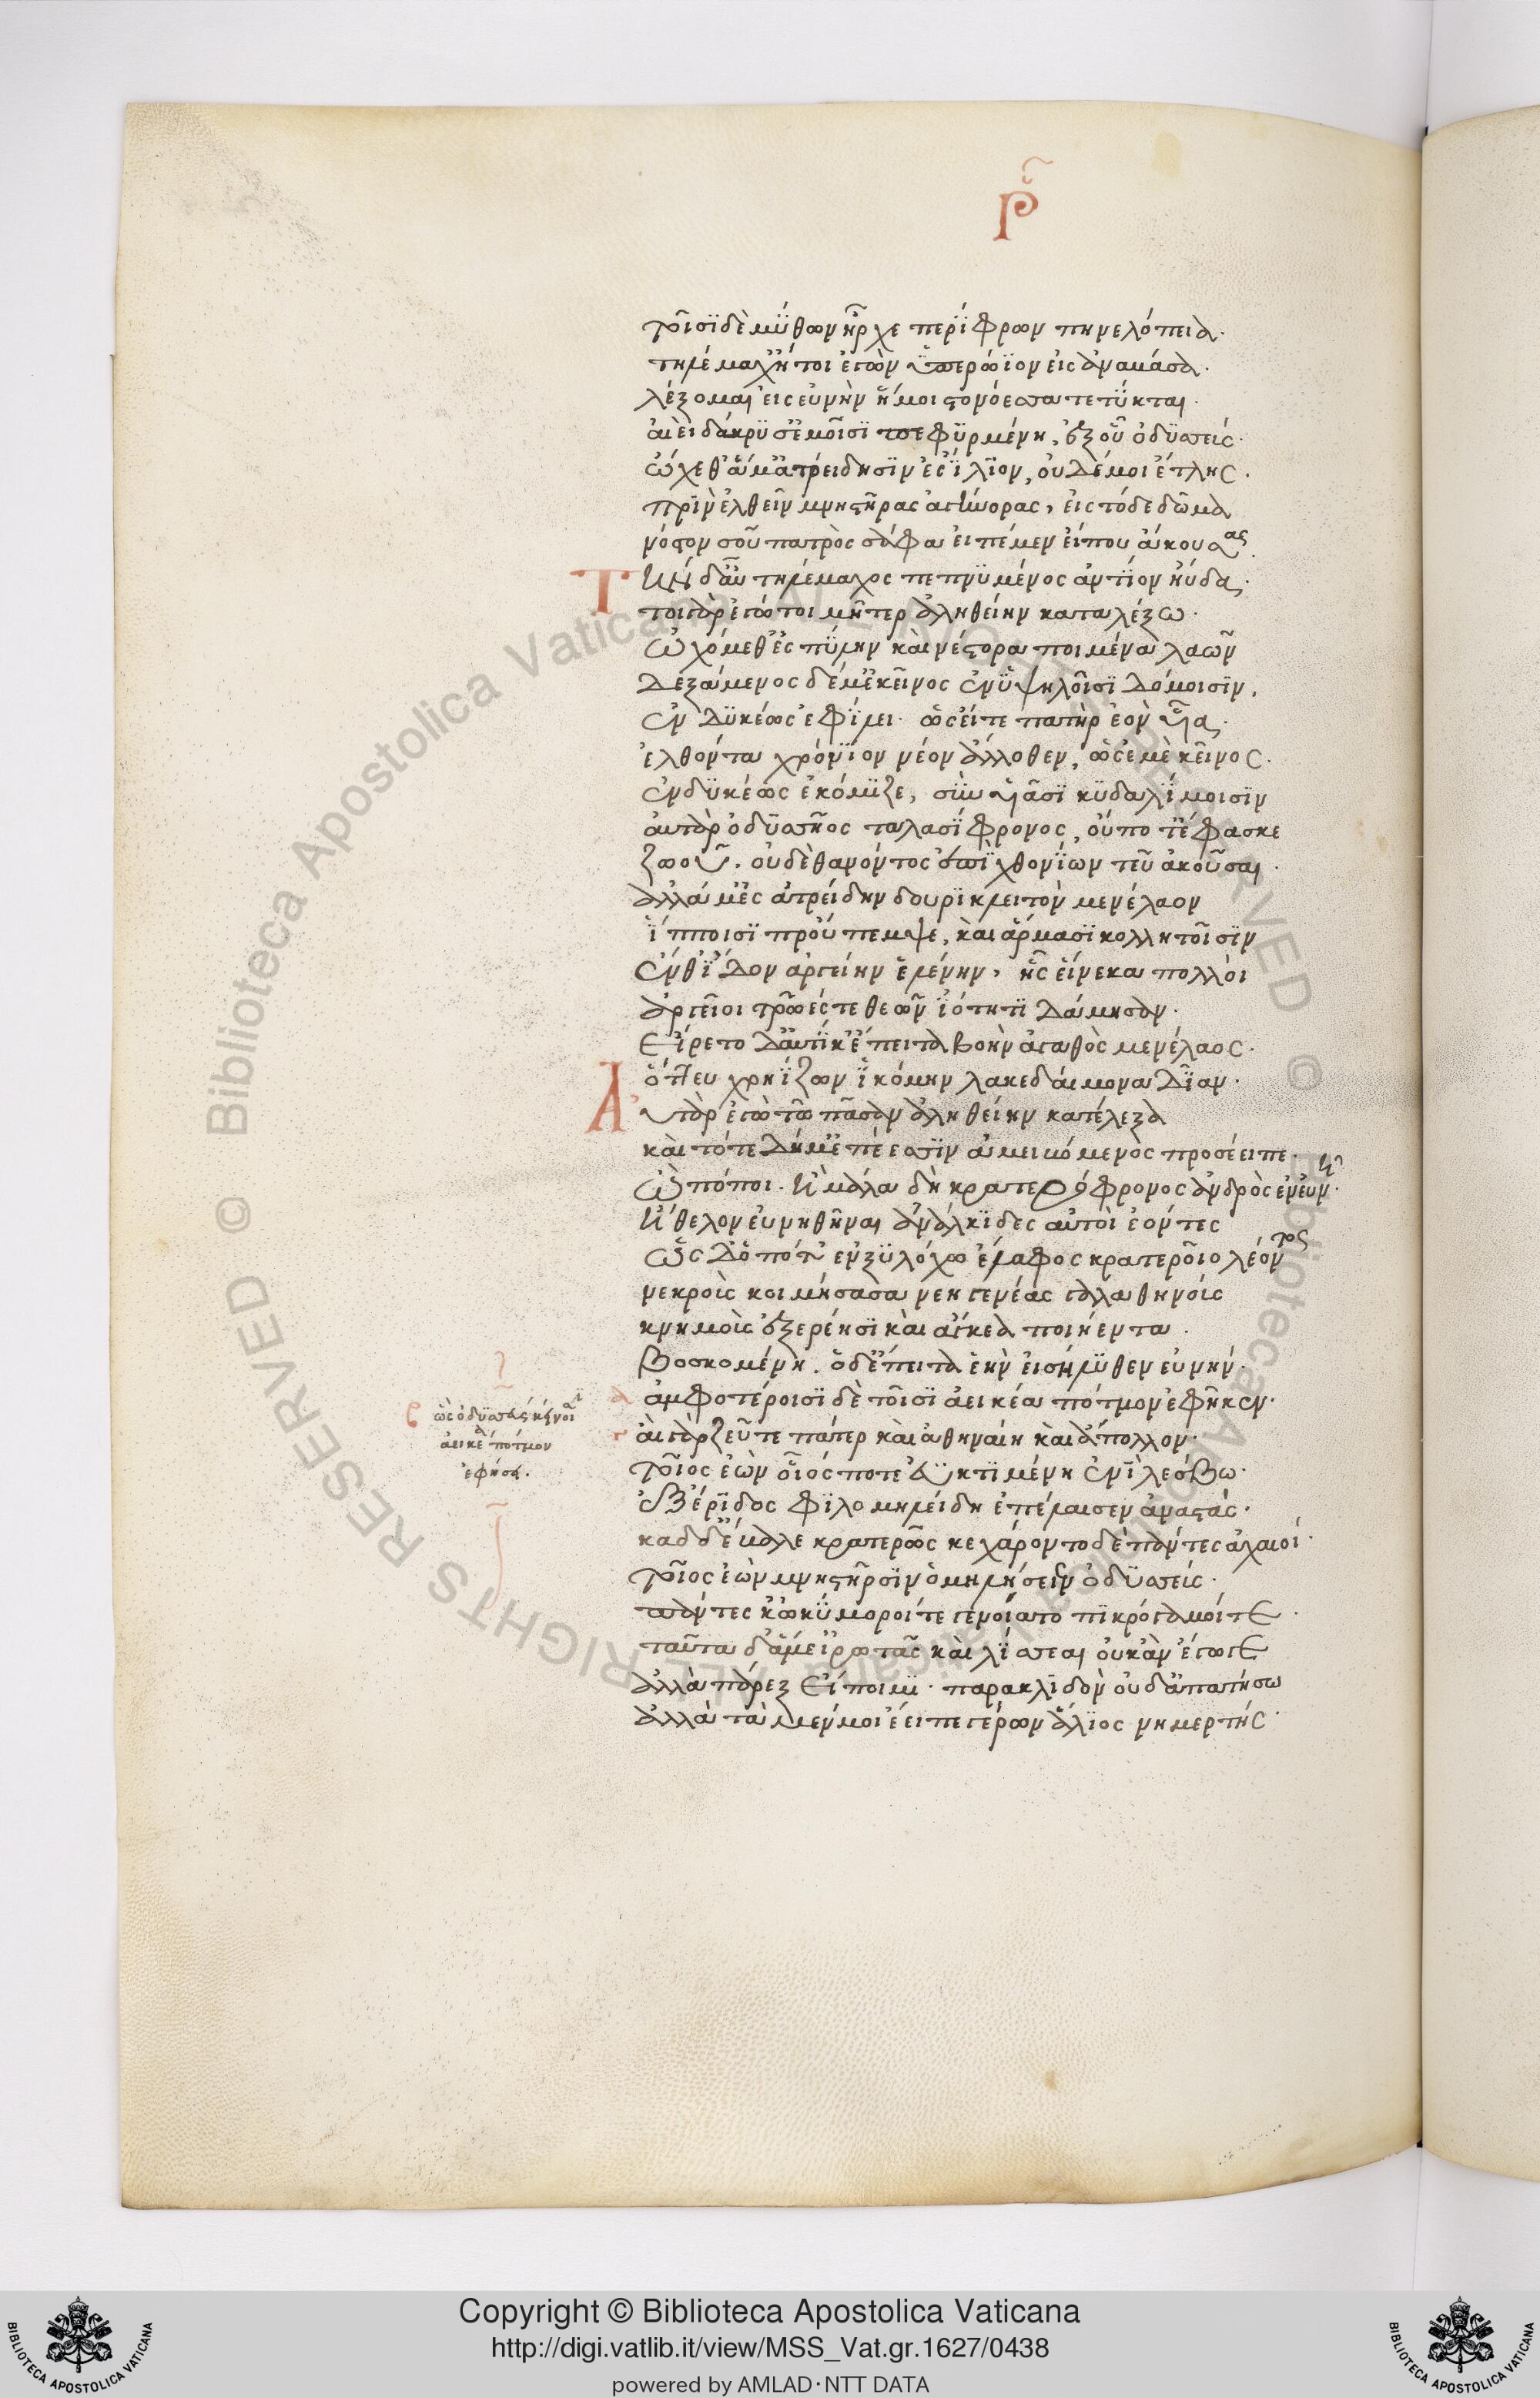 ρ
τοῖσϊ δὲ μΰθων ἦρχε περΐφρων πηνελόπεια·
τηλέμαχ' ἤτοι ἐγὼν ὑπερώϊον εἰς ἀναβᾶσα·
λέξομαι εἰς εὐνὴν ἥ μοι στονόεσσα τετΰκται·
αἰεὶ δάκρϋσ' ἐμοῖσϊ πεφϋρμένη, ἐξ οὗ ὀδϋσσεύς·
ὤχεθ' ἅμ' ἀτρείδησϊν ἐς ΐλϊον, οὐδέ μοι ἔτλης·
πρϊν ἐλθεῖν μνηστῆρας ἀγήνορας, εἰς τόδε δῶμα
νόστον σοῦ πατρὸς σάφα εἰπέμεν εἴ που ἄκουσας
Τὴν δ' αὖ τηλέμαχος πεπνϋμένος ἀντΐον ηὔδα·
τοιγὰρ ἐγώ τοι μῆτερ ἀληθείην καταλέξω·
ὠχόμεθ' ἐς πΰλην καὶ νέστορα ποιμένα λαῶν
δεξάμενος δέ μ' ἐκεῖνος ἐν ὑψηλοῖσϊ δόμοισϊν,
ἐνδϋκέως ἐφΐλει· ὡς εἴτε πατὴρ ἑὸν υἷα·
ἐλθόντα χρόνϊον νέον ἄλλοθεν, ὣς ἐμὲ κεῖνος·
ἐνδϋκέως ἐκόμϊζε, σὺν υἱάσϊ κϋδαλΐμοισϊν
αὐτὰρ ὀδϋσσῆος ταλασΐφρονος, οὔποτ' ἔφασκε
ζωοῦ. οὐδὲ θανόντος ἐπϊχθονΐων τεῦ ἀκοῦσαι·
ἀλλά μ' ἐς ἀτρείδην δουρϊκλειτὸν μενέλαον
ἵπποισϊ προὔπεμψε, καὶ ἅρμασϊ κολλητοῖσϊν
ἔνθ' ΐδον ἀργείην ἑλένην, ἧς εἵνεκα πολλοὶ
ἀργεῖοι τρῶές τε θεῶν ἰότητϊ δάμησαν·
εἴρετο δ' αὐτΐκ' ἔπειτα βοὴν ἀγαθὸς μενέλαος·
ὅττευ χρηΐζων ἱκόμην λακεδαίμονα δῖαν·
Αὐτὰρ ἐγὼ τῷ πᾶσαν ἀληθείην κατέλεξα
καὶ τότε δή μ' ἐπέεσσϊν ἀμειβόμενος προσέειπε·
ὢ πόποι. ἦ μάλα δὴ κρατερόφρονος ἀνδρὸς ἐν εὐνῇ·
ἤθελον εὐνηθῆναι ἀνάλκϊδες αὐτοὶ ἐόντες
ὡς δ' ὁπότ' ἐν ξϋλόχῳ ἔλαφος κρατεροῖο λέοντος
νεβροὺς κοιμήσασα νεηγενέας γαλαθηνοὺς
κνημοὺς ἐξερέησϊ καὶ ἄγκεα ποιήεντα·
βοσκομένη. ὁ δ' ἔπειτα ἑὴν εἰσήλϋθεν εὐνήν·
ἀμφοτέροισϊ δὲ τοῖσϊ ἀεικέα πότμον ἐφῆκεν·
ὣς ὀδϋσσεὺς κείνοισϊ
ἀεικέα πότμον
ἐφήσει.
αἲ γὰρ ζεῦ τε πάτερ καὶ ἀθηναίη καὶ ἄπολλον·
τοῖος ἐὼν οἷός ποτ' ἐϋκτϊμένη ἐνὶ λέσβω·
ἐξ ἔρϊδος φϊλομηλείδη ἐπέλαισεν ἀναστάς·
καδ δ' ἔβαλε κρατερῶς κεχάροντο δὲ πάντες ἀχαιοί·
τοῖος ἐὼν μνηστῆρσϊν ὁμηλήσειεν ὀδϋσσεύς·
πάντες κ' ὠκΰμοροί τε γενοίατο πϊκρόγαμοί τε·
ταῦτα δ' ἅ μ' εἰρωτᾷς καὶ λΐσσεαι οὐκ ἂν ἔγωγε
ἄλλα πάρεξ εἴποιμϊ· παρακλϊδὸν οὐδ' ἀπατήσω
ἀλλὰ τὰ μέν μοι ἔειπε γέρων ἅλϊος νημερτής·
Biblioteca Apostolica Vaticana ALL RIGHTS RESERVED ©
Copyright © Biblioteca Apostolica Vaticana
http://digi.vatlib.it/view/MSS_Vat.gr.1627/0438
powered by AMLAD·NTT DATA
BIBLIOTECA APOSTOLICA VATICANA
BIBLIOTECA APOSTOLICA VATICANA